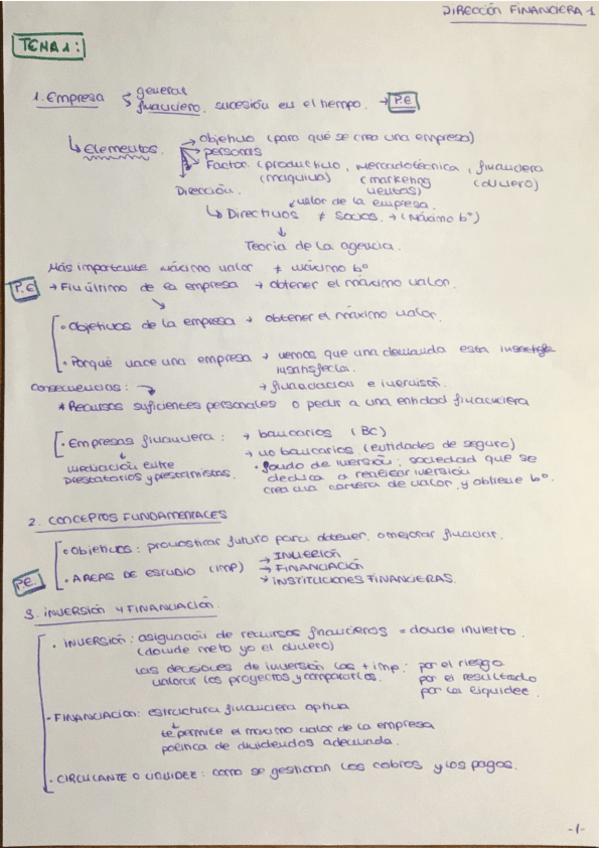 DIRECCIÓN FINANCIERA 1
TEMA 1:
1. Empresa
general
financiero. sucesión en el tiempo. → P.E
↳ Elementos.
→ Objetivo (para qué se crea una empresa)
→ personas
→ Factor. (productivo, mercadotécnica, financiero
(maquina) (marketing (dinero)
ventas)
Dirección.
valor de la empresa.
↳ Directivos ≠ Socios. → (Máximo bº)
↓
Teoría de la agencia.
Más importante máximo valor ≠ máximo bº
P.E → Fin último de la empresa → obtener el máximo valor.
• Objetivos de la empresa → obtener el máximo valor.
• Porqué nace una empresa → vemos que una demanda esta
insatisfecha.
Consecuencias: → → financiación e inversión.
* Recursos suficientes personales o pedir a una entidad financiera
• Empresas financiera: → bancarios (BC)
↓ → no bancarios (entidades de seguro)
mediación entre
prestatarios y prestamistas.
• fondo de inversión: sociedad que se
dedica a realizar inversión
crea una cartera de valor y obtiene bº.
2. CONCEPTOS FUNDAMENTALES
• Objetivos: pronosticar futuro para obtener. o mejorar financiar.
P.E. • AREAS DE ESTUDIO (IMP) → INVERSIÓN
→ FINANCIACIÓN
→ INSTITUCIONES FINANCIERAS.
3. INVERSIÓN Y FINANCIACIÓN.
• INVERSIÓN: asignación de recursos financieros = donde invierto.
(donde meto yo el dinero)
Las decisiones de inversión las + imp: por el riesgo
valorar los proyectos y compararlos. por el resultado
por la liquidez.
• FINANCIACION: estructura financiera optima
↓
te permite el maximo valor de la empresa
política de dividendos adecuada.
• CIRCULANTE O LIQUIDEZ: como se gestionan los cobros y los pagos.
-1-